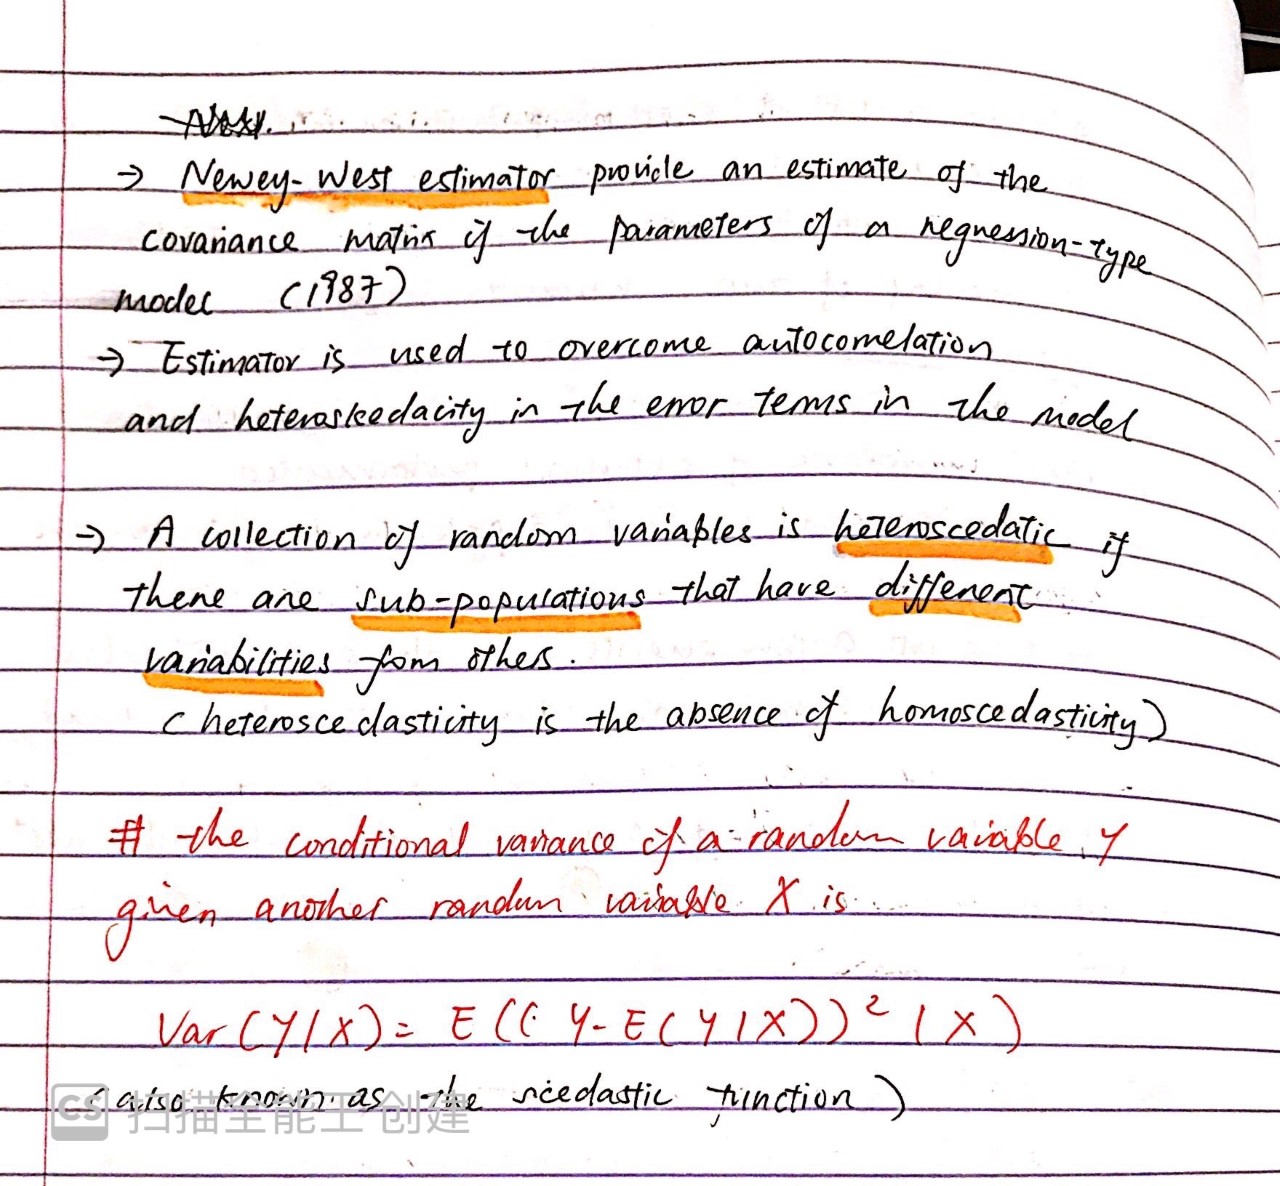 → Newey-West estimator provide an estimate of the
covariance matrix of the parameters of a regression-type
model (1987)
→ Estimator is used to overcome autocorrelation
and heteroskedacity in the error terms in the model
→ A collection of random variables is heteroscedatic if
there are sub-populations that have different
variabilities from others.
(heteroscedasticity is the absence of homoscedasticity)
# the conditional variance of a random variable Y
given another random variable X is
Var(Y|X) = E((Y-E(Y|X))² | X)
(also known as the scedastic function)
CS 扫描全能王 创建